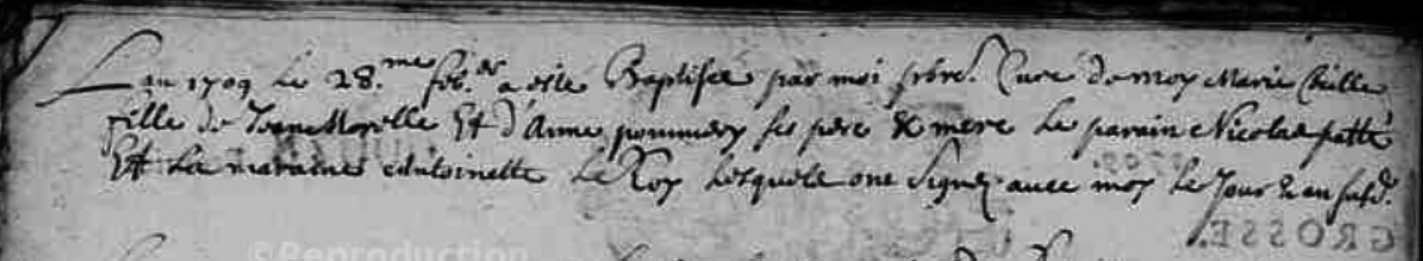 Lan 1709 le 28.me feb.er a este Baptisee par moi prbre. Cure de moy Marie
fille de Jean Morelle Et d'Anne pommery ses pere & mere Le parain Nicolas patté
Et La maraine Antoinette Le Roy Lesquels ont signez avec moy Le Jour & an susd.
GROSSE.
©Reproduction